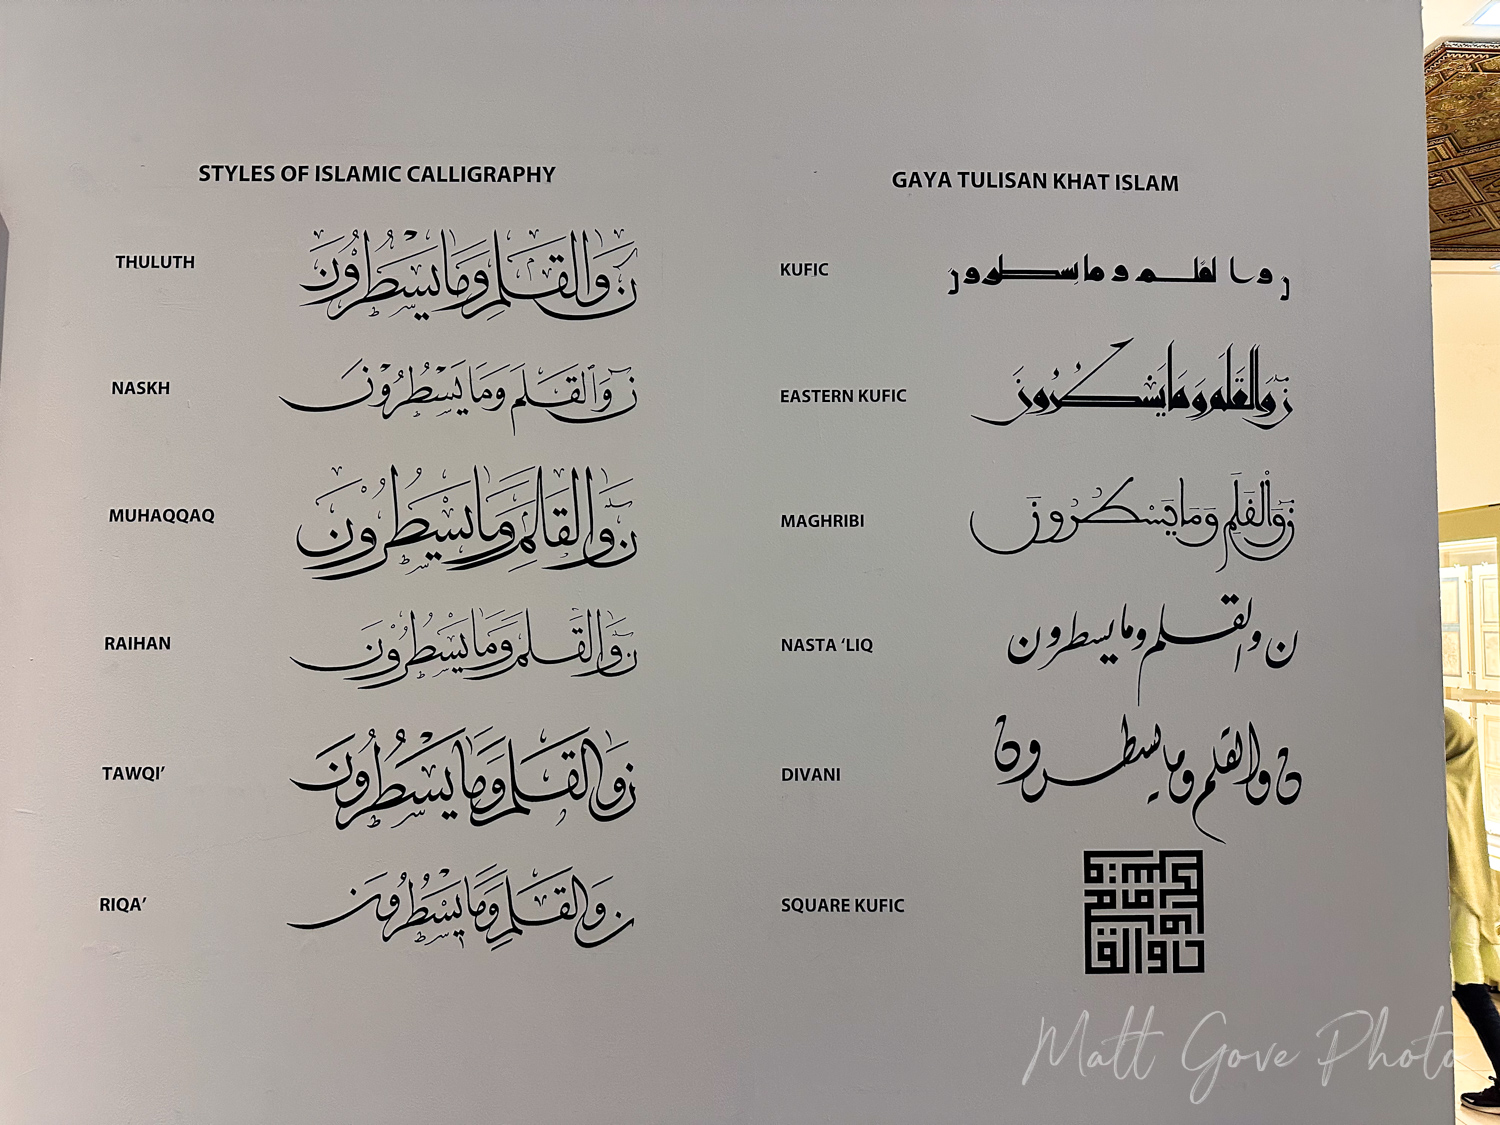 STYLES OF ISLAMIC CALLIGRAPHY
THULUTH
ن وَالْقَلَمِ وَمَا يَسْطُرُونَ
NASKH
ن وَالْقَلَمِ وَمَا يَسْطُرُونَ
MUHAQQAQ
ن وَالْقَلَمِ وَمَا يَسْطُرُونَ
RAIHAN
ن وَالْقَلَمِ وَمَا يَسْطُرُونَ
TAWQI’
ن وَالْقَلَمِ وَمَا يَسْطُرُونَ
RIQA’
ن وَالْقَلَمِ وَمَا يَسْطُرُونَ
GAYA TULISAN KHAT ISLAM
KUFIC
ن والقلم وما يسطرون
EASTERN KUFIC
ن وَالْقَلَمِ وَمَا يَسْطُرُونَ
MAGHRIBI
ن وَالْقَلَمِ وَمَا يَسْطُرُونَ
NASTA ‘LIQ
ن والقلم وما يسطرون
DIVANI
ن والقلم وما يسطرون
SQUARE KUFIC
ن والقلم وما يسطرون
Matt Gove Photo